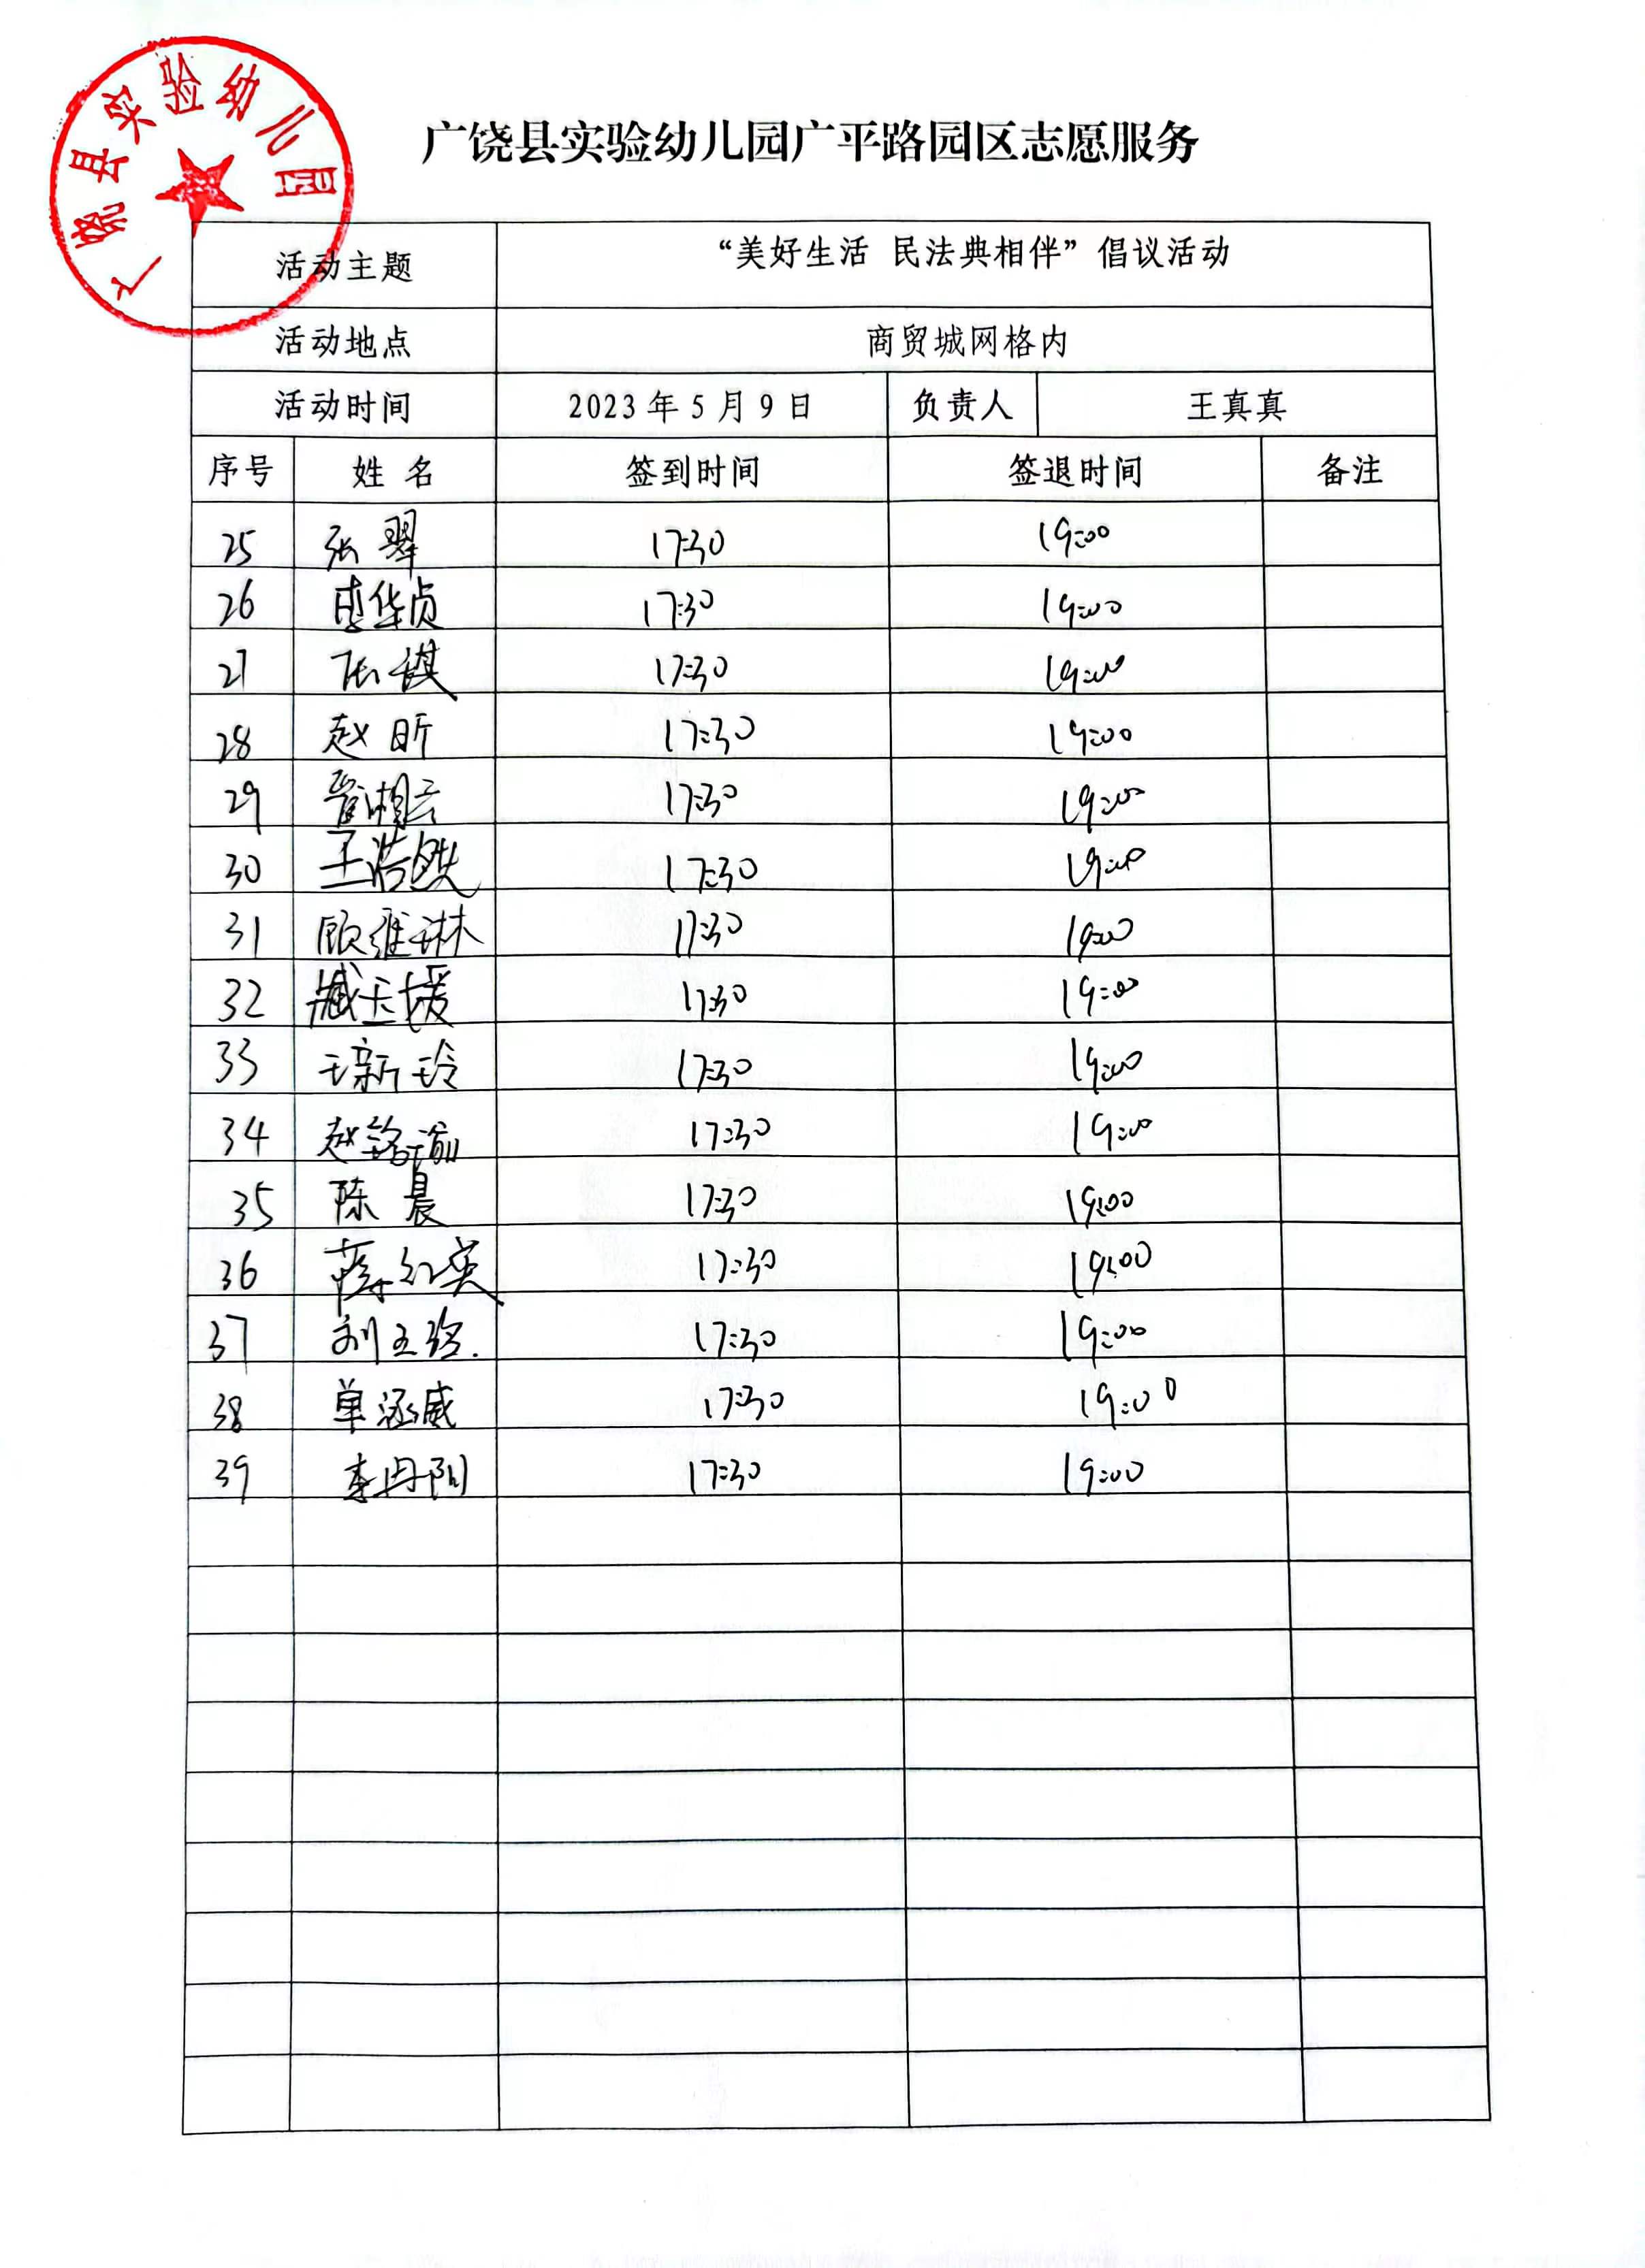 广饶县实验幼儿园
广饶县实验幼儿园广平路园区志愿服务
活动主题 “美好生活 民法典相伴”倡议活动
活动地点 商贸城网格内
活动时间 2023年5月9日 负责人 王真真
序号 姓名 签到时间 签退时间 备注
25 张翠 17:30 19:00
26 李华贞 17:30 19:00
27 张祺 17:30 19:00
28 赵昕 17:30 19:00
29 管湘云 17:30 19:00
30 王浩然 17:30 19:00
31 顾维琳 17:30 19:00
32 臧玉媛 17:30 19:00
33 王新玲 17:30 19:00
34 赵铭瑜 17:30 19:00
35 陈晨 17:30 19:00
36 薛红英 17:30 19:00
37 刘玉 17:30 19:00
38 单涵威 17:30 19:00
39 李丹阳 17:30 19:00